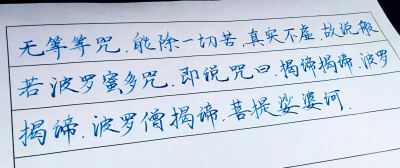 无等等咒.能除一切苦.真实不虚 故说般
若波罗蜜多咒.即说咒曰.揭谛揭谛.波罗
揭谛.波罗僧揭谛.菩提娑婆诃.